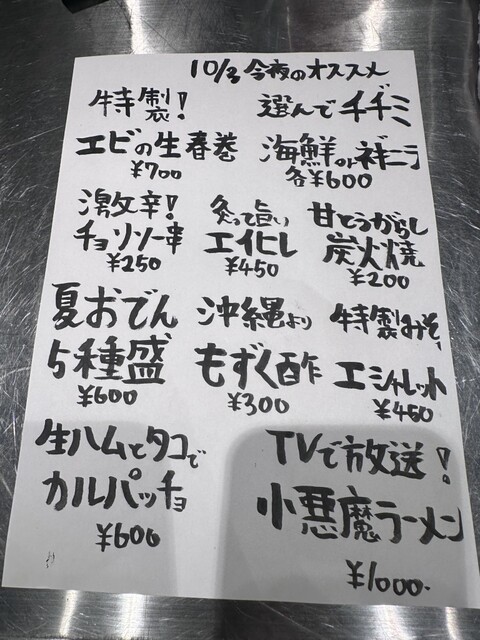 10/3 今夜のオススメ
特製!
エビの生春巻
¥700
選んでチヂミ
海鮮orネギニラ
各¥600
激辛!
チョリソー串
¥250
炙って旨い
エイヒレ
¥450
甘とうがらし
炭火焼
¥200
夏おでん
5種盛
¥600
沖縄より
もずく酢
¥300
特製みそ
エシャレット
¥450
生ハムとタコで
カルパッチョ
¥600
TVで放送!
小悪魔ラーメン
¥1000.